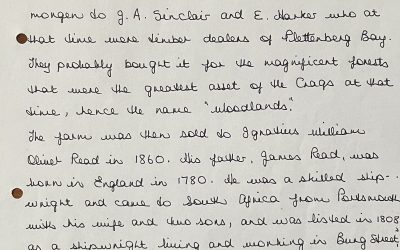 morgen to J. A. Sinclair and E. Harker who at
that time were timber dealers of Plettenberg Bay.
They probably bought it for the magnificent forests
that were the greatest asset of the Crags at that
time, hence the name "Woodlands."
The farm was then sold to Ignatius William
Oliver Read in 1860. His father, James Read, was
born in England in 1780. He was a skilled ship-
wright and came to South Africa from Portsmouth
with his wife and two sons, and was listed in 1808
as a shipwright living and working in Burg Street